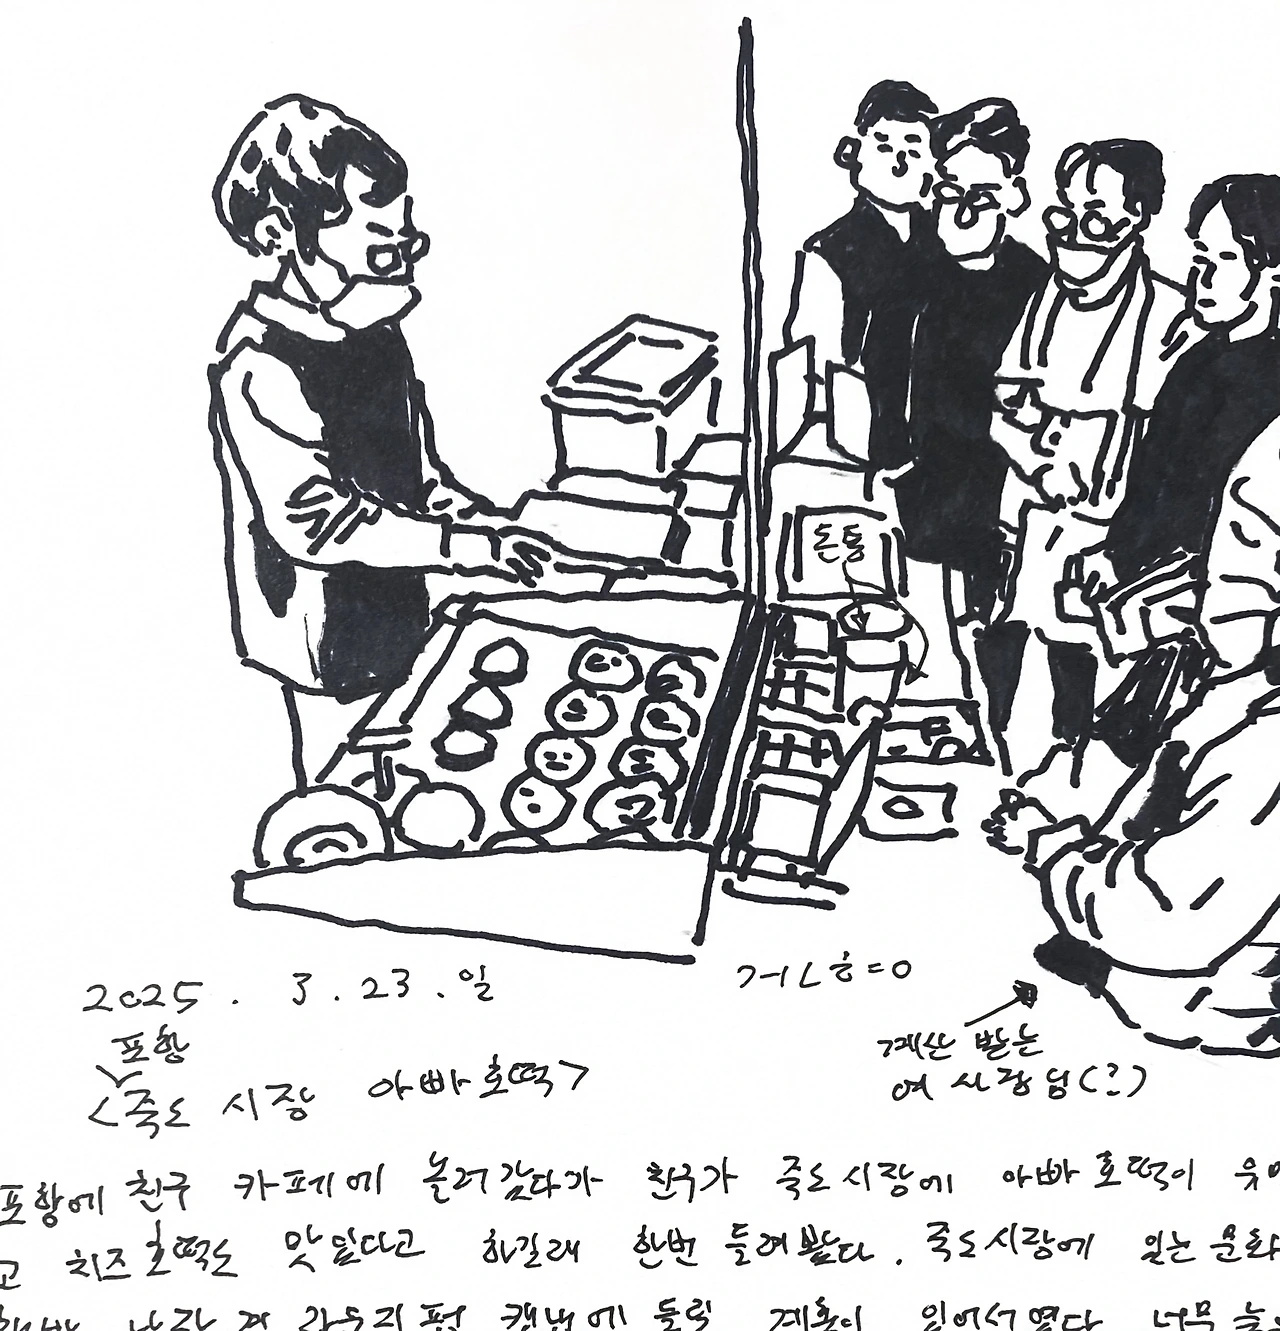 돈통
2025 . 3 . 23 . 일
거스름=0
포항
<죽도 시장 아빠 호떡>
계산 받는
여 사장님(?)
포항에 친구 카페에 놀러 갔다가 친구가 죽도 시장에 아빠 호떡이 유
고 치즈 호떡도 맛있다고 하길래 한번 들려봤다. 죽도시장에 있는
계획이 있어서였다 너무